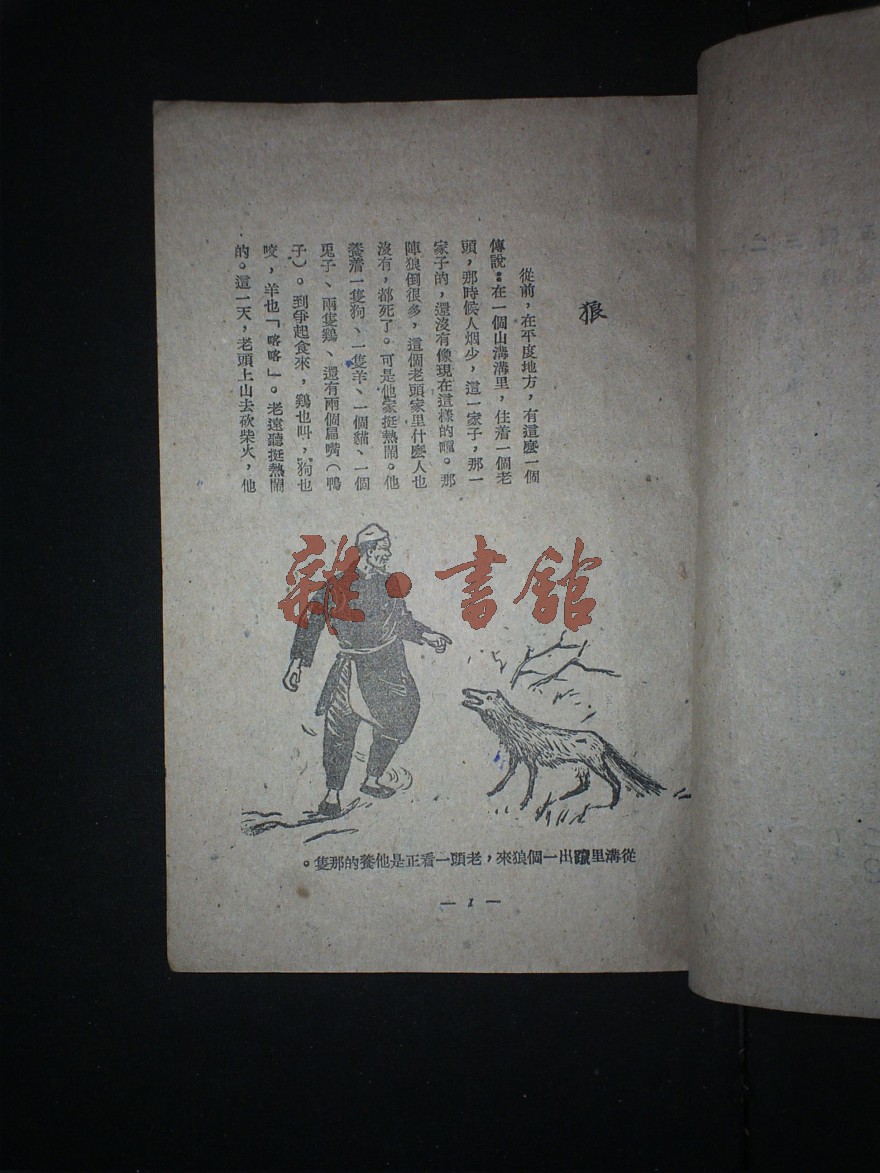 狼
從前，在平度地方，有這麼一個
傳說：在一個山溝溝里，住着一個老
頭，那時候人烟少，這一家子，那一
家子的，還沒有像現在這樣的。那
陣狼倒很多，這個老頭家里什麼人也
沒有，都死了。可是他家挺熱鬧。他
養着一隻狗、一隻羊、一個貓、一個
兎子、兩隻鷄、還有兩個扁嘴（鴨
子）。到爭起食來，鷄也叫，狗也
咬，羊也「喀喀」。老遠聽挺熱鬧
的。這一天，老頭上山去砍柴火，他
雜·書舘
從溝里躥出一個狼來，老頭一看正是他養的那隻。
— 1 —